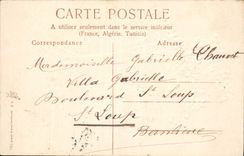 CARTE POSTALE
A utiliser seulement dans le service intérieur
(France, Algérie, Tunisie)
Correspondance Adresse
Mademoiselle Gabrielle Chauvet
Villa Gabrielle
Boulevard St Loup
St Loup
Banlieue